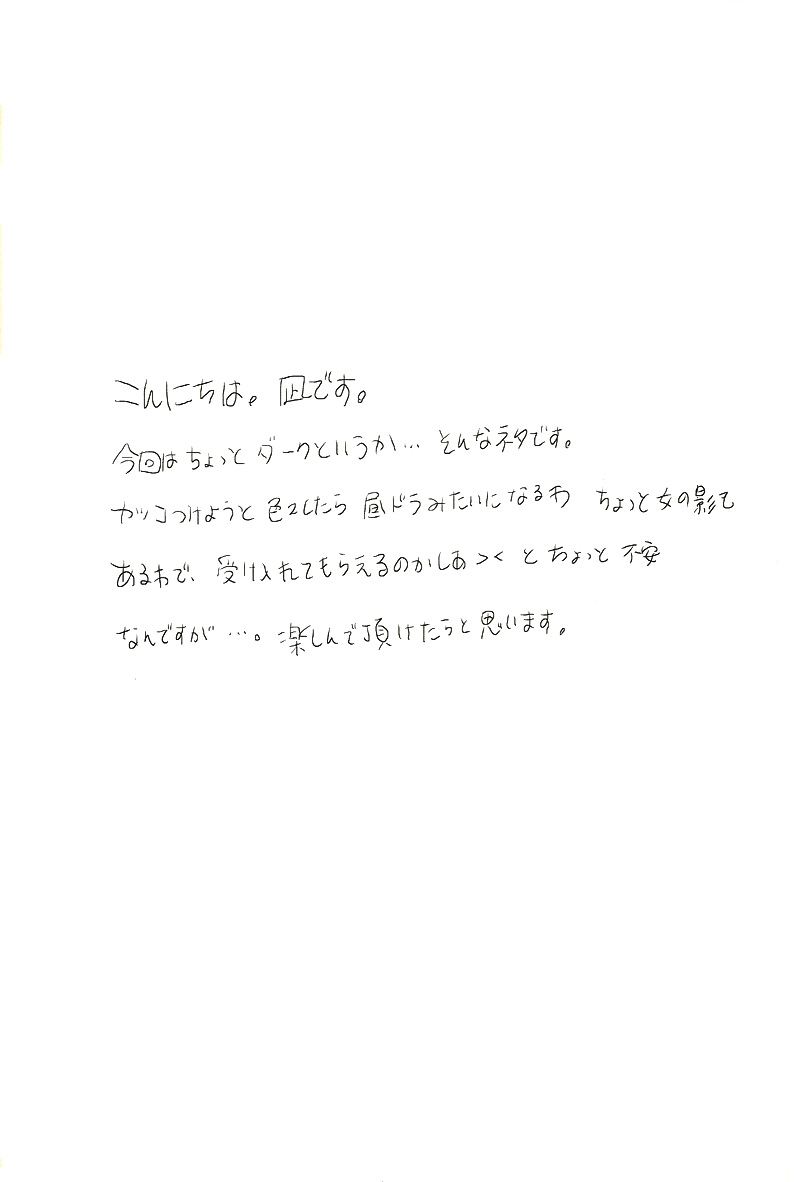 こんにちは。凪です。
今回はちょっとダークというか… そんなネタです。
カッコつけようと色々したら昼ドラみたいになるわ ちょっと女の影も
あるわで、受け入れてもらえるのかしあ>< とちょっと不安
なんですが…。楽しんで頂けたらと思います。